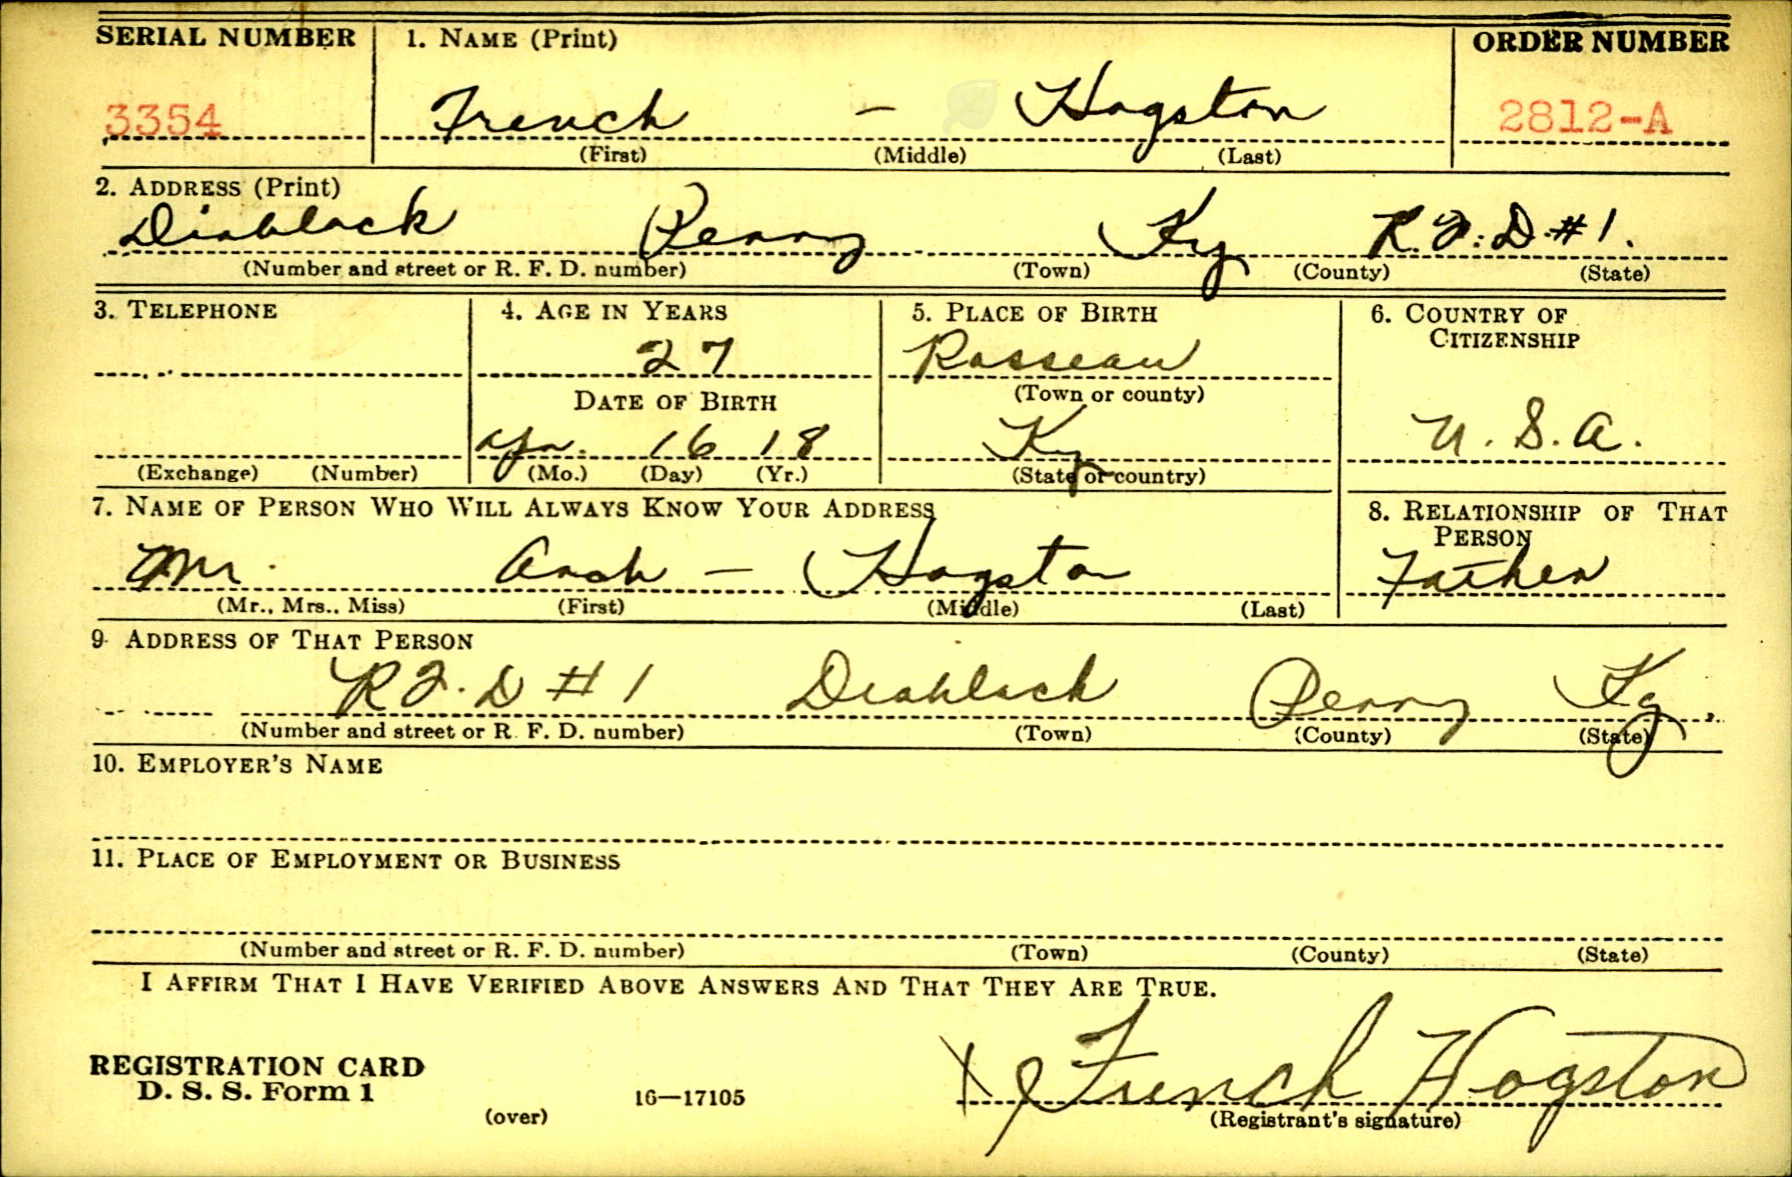 SERIAL NUMBER 1. NAME (Print) ORDER NUMBER
3354 French — Hogston 2812-A
(First) (Middle) (Last)
2. ADDRESS (Print)
Diablock Perry Ky R.F.D. #1.
(Number and street or R. F. D. number) (Town) (County) (State)
3. TELEPHONE 4. AGE IN YEARS 5. PLACE OF BIRTH 6. COUNTRY OF CITIZENSHIP
27 Rosseau
DATE OF BIRTH (Town or county)
16 18 Ky U.S.A.
(Exchange) (Number) (Mo.) (Day) (Yr.) (State or country)
7. NAME OF PERSON WHO WILL ALWAYS KNOW YOUR ADDRESS 8. RELATIONSHIP OF THAT PERSON
Mr. Arch — Hogston Father
(Mr., Mrs., Miss) (First) (Middle) (Last)
9. ADDRESS OF THAT PERSON
R F.D #1 Diablock Perry Ky.
(Number and street or R. F. D. number) (Town) (County) (State)
10. EMPLOYER'S NAME
11. PLACE OF EMPLOYMENT OR BUSINESS
(Number and street or R. F. D. number) (Town) (County) (State)
I AFFIRM THAT I HAVE VERIFIED ABOVE ANSWERS AND THAT THEY ARE TRUE.
REGISTRATION CARD X French Hogston
D. S. S. Form 1 16—17105
(over) (Registrant's signature)